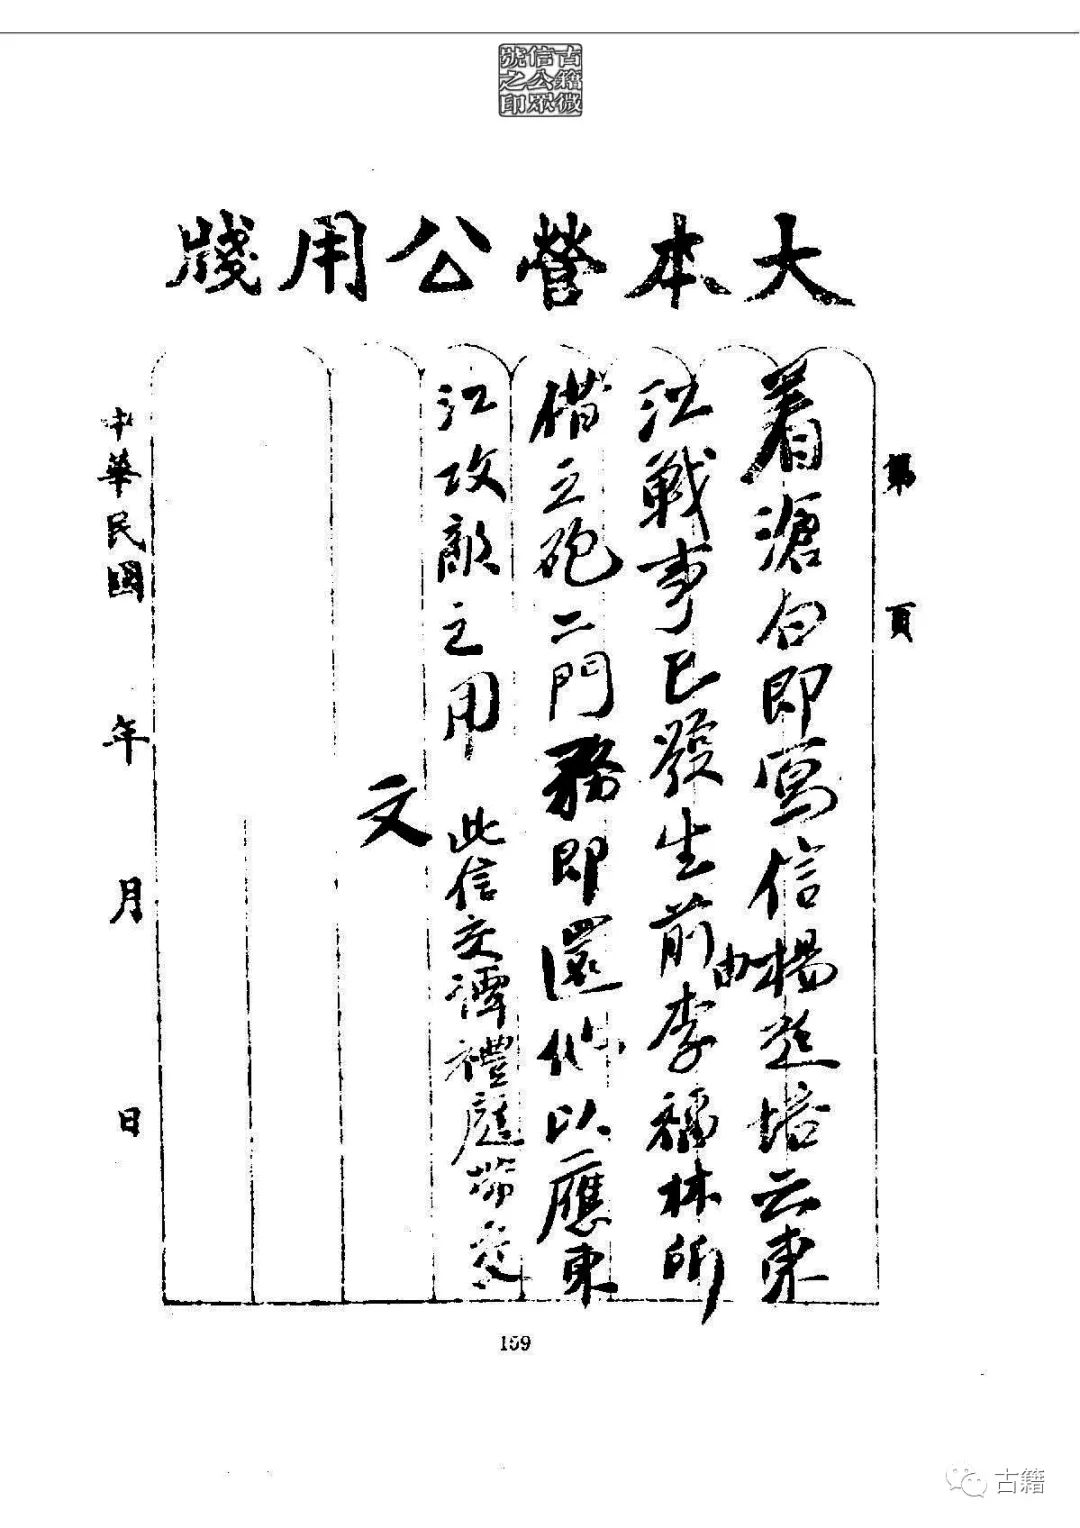 古籍微
信公眾
號之印
大本營公用牋
第 頁
着滄白即寫信楊益培云東
江戰事已發生前由李福林所
借之砲二門務即還他以應東
江攻敵之用 此信交譚禮庭帶交
文
中華民國 年 月 日
159
古籍